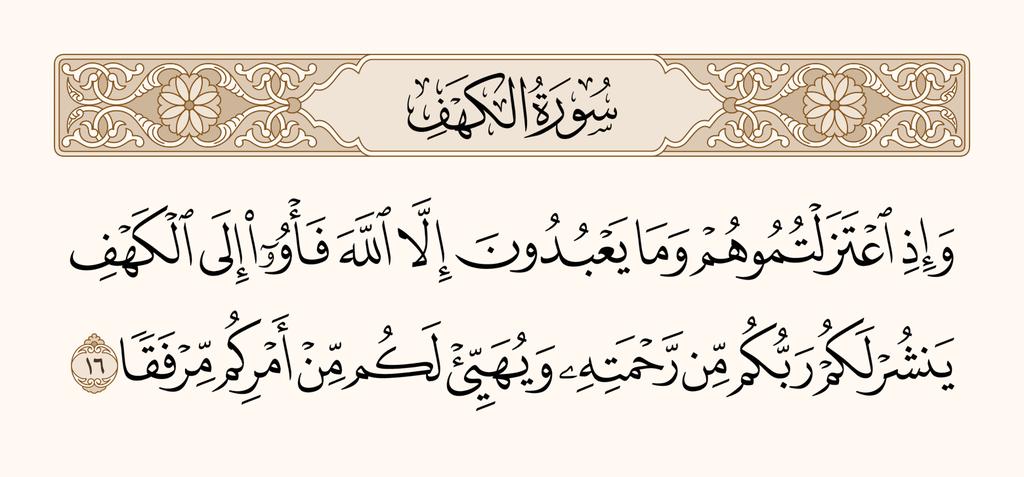 سُورَةُ الكَهۡفِ
وَإِذِ ٱعۡتَزَلۡتُمُوهُمۡ وَمَا يَعۡبُدُونَ إِلَّا ٱللَّهَ فَأۡوُۥٓاْ إِلَى ٱلۡكَهۡفِ
يَنشُرۡ لَكُمۡ رَبُّكُم مِّن رَّحۡمَتِهِۦ وَيُهَيِّئۡ لَكُم مِّنۡ أَمۡرِكُم مِّرۡفَقٗا ١٦